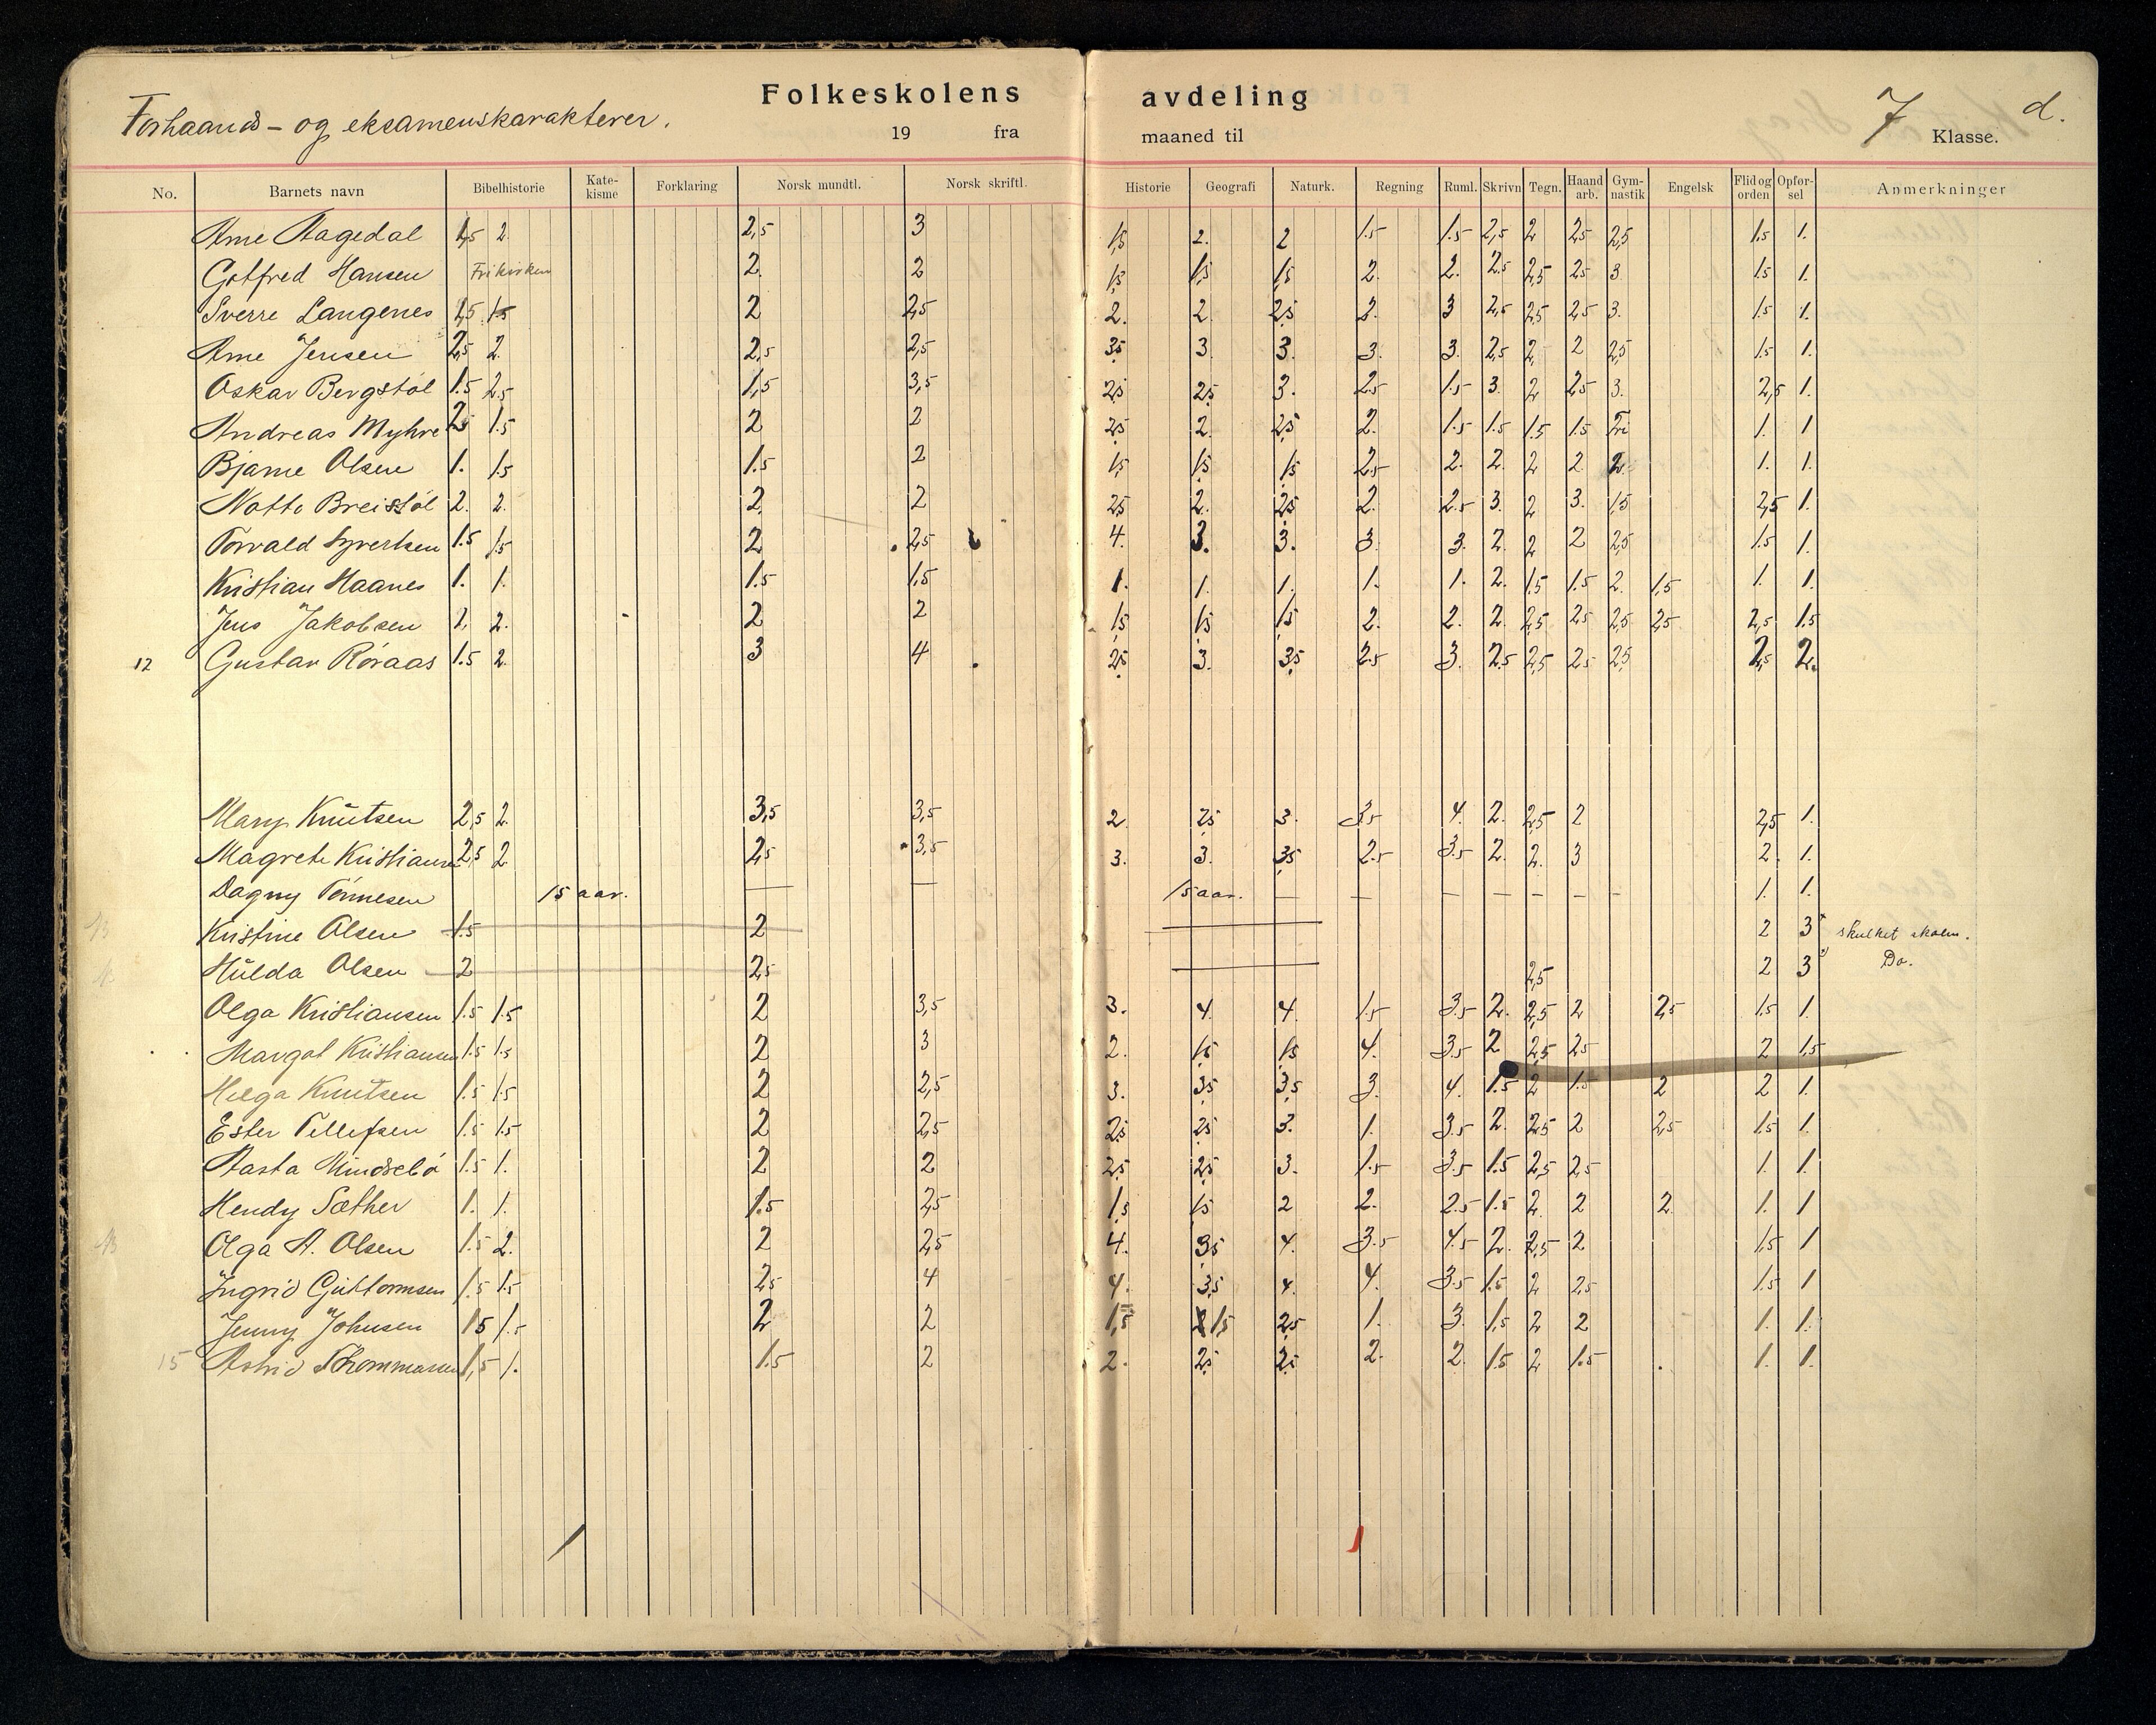 Folkeskolens avdeling
Forhaands- og eksamenskarakterer. 7 d.
19 fra maaned til Klasse.
No. Barnets navn Bibelhistorie Kate-kisme Forklaring Norsk mundtl. Norsk skriftl. Historie Geografi Naturk. Regning Ruml. Skrivn Tegn. Haand arb. Gym-nastik Engelsk Flid og orden Opfør-sel Anmerkninger
Arne Aagedal 1,5 2. 2,5 3 1,5 2. 2 1.5 1.5 2,5 2 2,5 2,5 1.5 1.
Gotfred Hansen Frikirken 2. 2 1,5 1,5 1,5 2. 2. 2.5 2,5 2,5 3. 1.5 1.
Sverre Langenes 1,5 1.5 2 2,5 2. 2. 2,5 2. 3 2,5 2,5 2,5 3. 1.5 1.
Arne Jensen 2,5 2. 2,5 2,5 3,5 3. 3. 3. 3. 2,5 2. 2 2,5 1.5 1.
Oskar Bergstøl 1.5 2.5 1,5 3,5 2,5 2,5 3. 2.5 1.5 3. 2 2,5 3. 2,5 1.
Andreas Myhre 2,5 1.5 2 2 2,5 2. 2,5 2. 1.5 1.5 1.5 1.5 Fri 1. 1
Bjarne Olsen 1. 1.5 1.5 2 1,5 1,5 1,5 2.5 2. 2. 2 2. 2 1. 1.
Notto Breistøl 2. 2. 2 2 2,5 2. 2,5 2. 2.5 3. 2 3. 1,5 2,5 1.
Torvald Syvertsen 1.5 1.5 2 2,5 4. 3. 3. 3. 3. 2. 2 2 2,5 1.5 1.
Kristian Haanes 1. 1. 1.5 1,5 1. 1. 1. 1. 1. 2. 1,5 1.5 2. 1,5 1. 1.
Jens Jakobsen 2. 2. 2 2 1,5 1,5 1,5 2. 2. 2. 2,5 2,5 2,5 2,5 2,5 1.5
12 Gustav Røraas 1.5 2. 3 4 2,5 3. 3,5 2.5 3. 2.5 2,5 2.5 2,5 2,5 2.
Mary Knutsen 2,5 2. 3,5 3,5 2. 2,5 3. 3.5 4. 2. 2,5 2 2,5 1.
Magrete Kristiansen 2,5 2 2,5 3,5 3. 3. 3,5 2.5 3.5 2. 2. 3 2. 1.
Dagny Tønnesen 15 aar. — — 15 aar. — — — — — — 1. 1.
Kristine Olsen 1.5 2 2 3 skulket skolen.
Hulda Olsen 2 2,5 2,5 2 3 Do.
Olga Kristiansen 1.5 1.5 2 3,5 3. 4. 4. 1.5 3.5 2. 2,5 2 2,5 1.5 1.
Margot Kristiansen 1.5 1.5 2 3 2. 1,5 1,5 4. 3.5 2 2,5 2,5 2 1,5
Helga Knutsen 1.5 1.5 2 2,5 3. 3,5 3,5 3. 4. 1.5 2 1.5 2 2 1.
Ester Tellefsen 1.5 1.5 2 2,5 2,5 2,5 3. 1. 3.5 2. 2,5 2 2,5 1.5 1.
Aasta Mindsebø 1.5 1. 2 2 2,5 2,5 3. 1.5 3.5 1.5 2,5 2,5 1. 1.
Hendy Sæther 1. 1. 1.5 2,5 1,5 1,5 2 2. 2.5 1.5 2. 2 2. 1. 1
Olga A. Olsen 1.5 2. 2 2,5 4. 3,5 4. 3.5 4.5 2. 2,5 2 1.5 1
Ingrid Guttormsen 1.5 1.5 2,5 4 4. 3,5 4. 4. 3.5 1.5 2 2,5 1.5 1
Jenny Johnsen 1 5 1.5 2 2 1,5 1,5 2,5 1. 3. 1,5 2 2 1. 1.
15 Astrid Thommassen 1,5 1. 1.5 2 2. 2,5 2,5 2. 2. 1.5 2 1.5 1. 1.